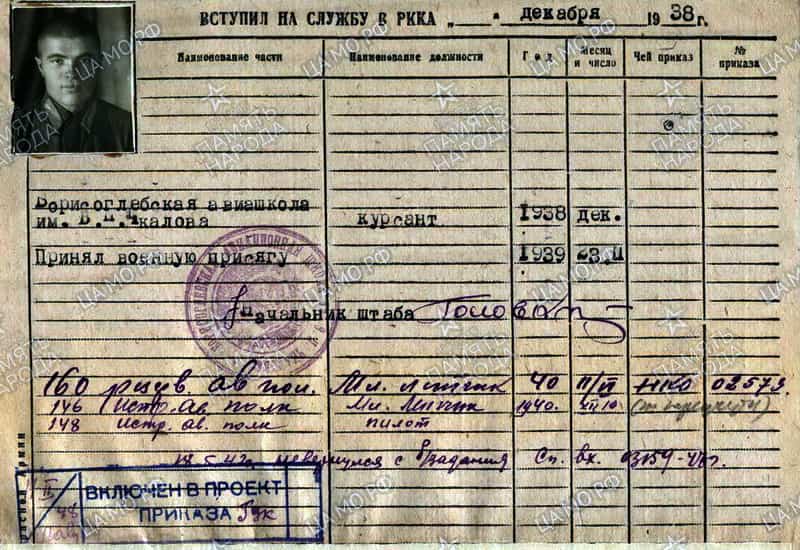 ВСТУПИЛ НА СЛУЖБУ В РККА „ “ декабря 1938г.
Наименование части Наименование должности Год Месяц и число Чей приказ № приказа
Борисоглебская авиашкола
им. В.П.Чкалова курсант 1938 дек.
Принял военную присягу 1939 23.II
Начальник штаба
160 резерв ав пол. Мл. летчик 40 НКО 02573.
146 Истр. ав. полк Мл. Летчик 1940. XII 10
148 Истр. ав. полк пилот
не вернулся с б/задания Сп. вх. 03159
ВКЛЮЧЕН В ПРОЕКТ
ПРИКАЗА Гук
48
ПАМЯТЬ НАРОДА
ЦА МО.РФ